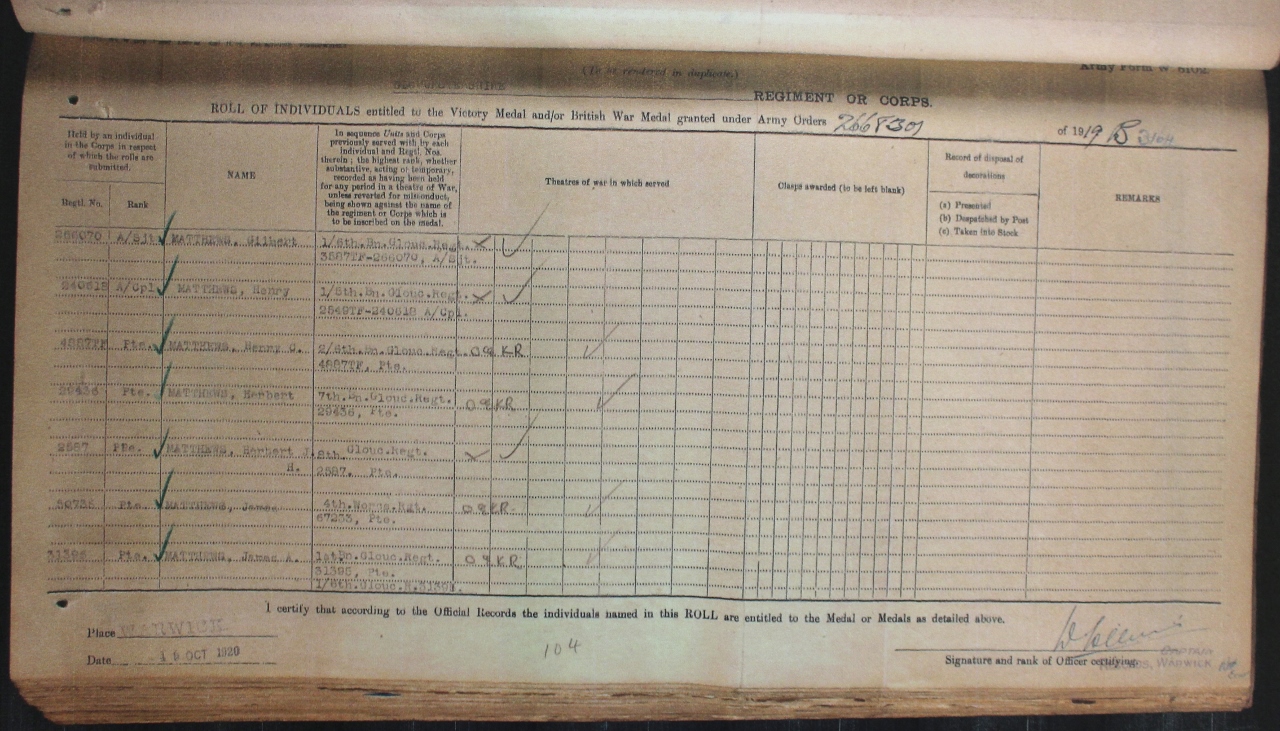 (To be rendered in duplicate.)
Army Form W 5102.
REGIMENT OR CORPS.
ROLL OF INDIVIDUALS entitled to the Victory Medal and/or British War Medal granted under Army Orders 266 & 301 of 1919 B
Held by an individual in the Corps in respect of which the rolls are submitted.
Regtl. No.
Rank
NAME
In sequence Units and Corps previously served with by each Individual and Regtl. Nos. therein; the highest rank, whether substantive, acting or temporary, recorded as having been held for any period in a theatre of War, unless reverted for misconduct, being shown against the name of the regiment or Corps which is to be inscribed on the medal.
Theatres of war in which served
Clasps awarded (to be left blank)
Record of disposal of decorations
(a) Presented
(b) Despatched by Post
(c) Taken into Stock
REMARKS
266070 A/Sjt. MATTHEWS, Gilbert 1/6th.Bn.Glouc.Regt.
3587TF-266070, A/Sjt.
240618 A/Cpl. MATTHEWS, Henry 1/5th.Bn.Glouc.Regt.
2549TF-240618 A/Cpl.
4887TF Pte. MATTHEWS, Henry C. 2/6th.Bn.Glouc.Regt.
4887TF, Pte.
29436 Pte. MATTHEWS, Herbert 7th.Bn.Glouc.Regt.
29436, Pte.
2587 Pte. MATTHEWS, Herbert J. 8th Glouc.Regt.
H. 2587. Pte.
50736 Pte. MATTHEWS, James 4th. Rgt.
Pte.
31395 Pte. MATTHEWS, James A. 1st Bn.Glouc.Regt.
31395, Pte.
I certify that according to the Official Records the individuals named in this ROLL are entitled to the Medal or Medals as detailed above.
Place WARWICK
Date OCT 1920
104
Signature and rank of Officer certifying.
CAPTAIN
RECORDS, WARWICK